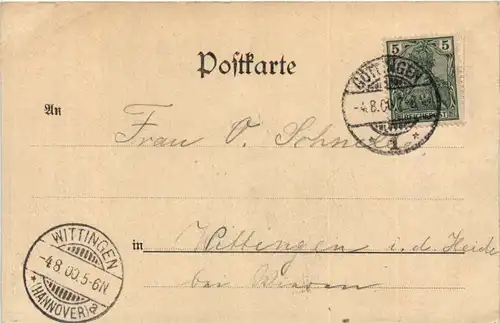 5 5
Postkarte
GÖTTINGEN
-4.8.00.
* 1 *
An
Frau O.
in Wittingen i. d. Heide
bei
WITTINGEN
-4.8.00.5-6N
*(HANNOVER)a